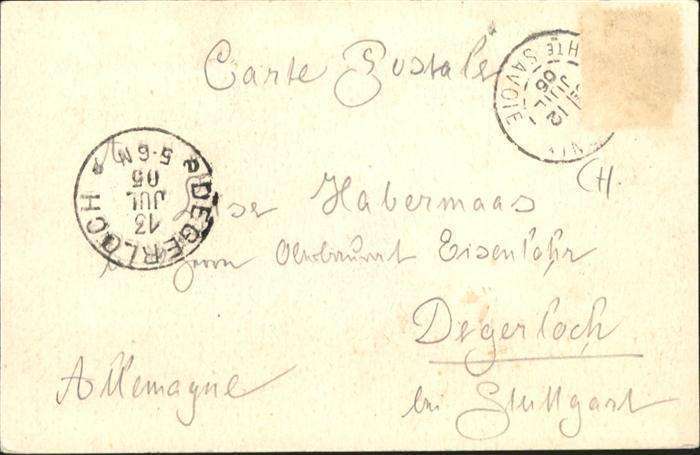 Carte Postale
HTE SAVOIE
12
JUIL
06
CH.
DEGERLOCH
13
JUL
05
5-6 N
Habermaas
Herrn Oberbaurat Eisenlohr
Degerloch
bei Stuttgart
Allemagne